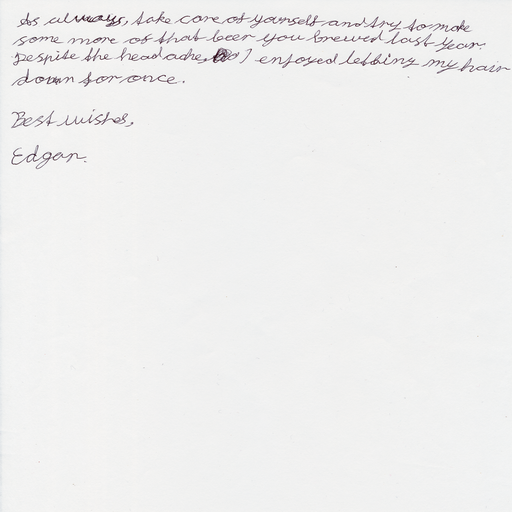 As always, take care of yourself and try to make
some more of that beer you brewed last year.
Despite the headache, I enjoyed letting my hair
down for once.
Best wishes,
Edgar.